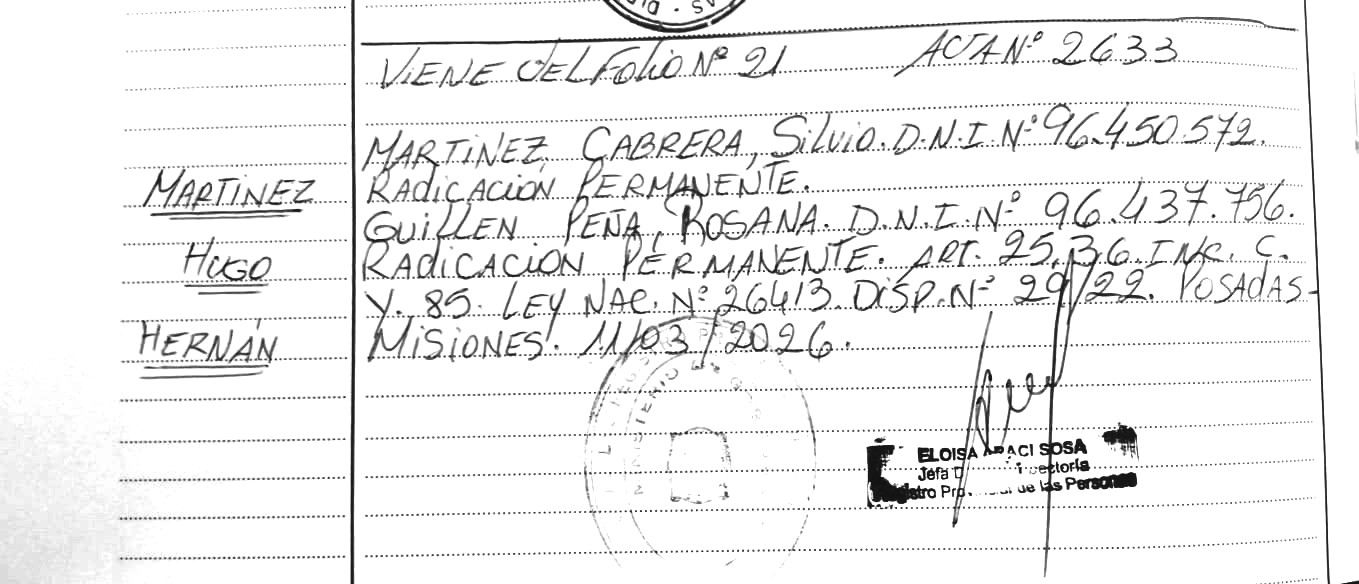 AS · DI
VIENE DEL FOLIO Nº 21 ACTA Nº 2633
MARTINEZ CABRERA, Silvio. D.N.I Nº 96.450.572.
MARTINEZ RADICACIÓN PERMANENTE.
GUILLEN PEÑA, ROSANA. D.N.I. Nº 96.437.756.
HUGO RADICACIÓN PERMANENTE. ART. 25,36. INC. C.
Y. 85. LEY NAC. Nº 26413. DISP. Nº 29/22. POSADAS-
HERNÁN MISIONES. 11/03/2026.
ELOISA ARACI SOSA
Jefa
Registro Provincial de las Personas